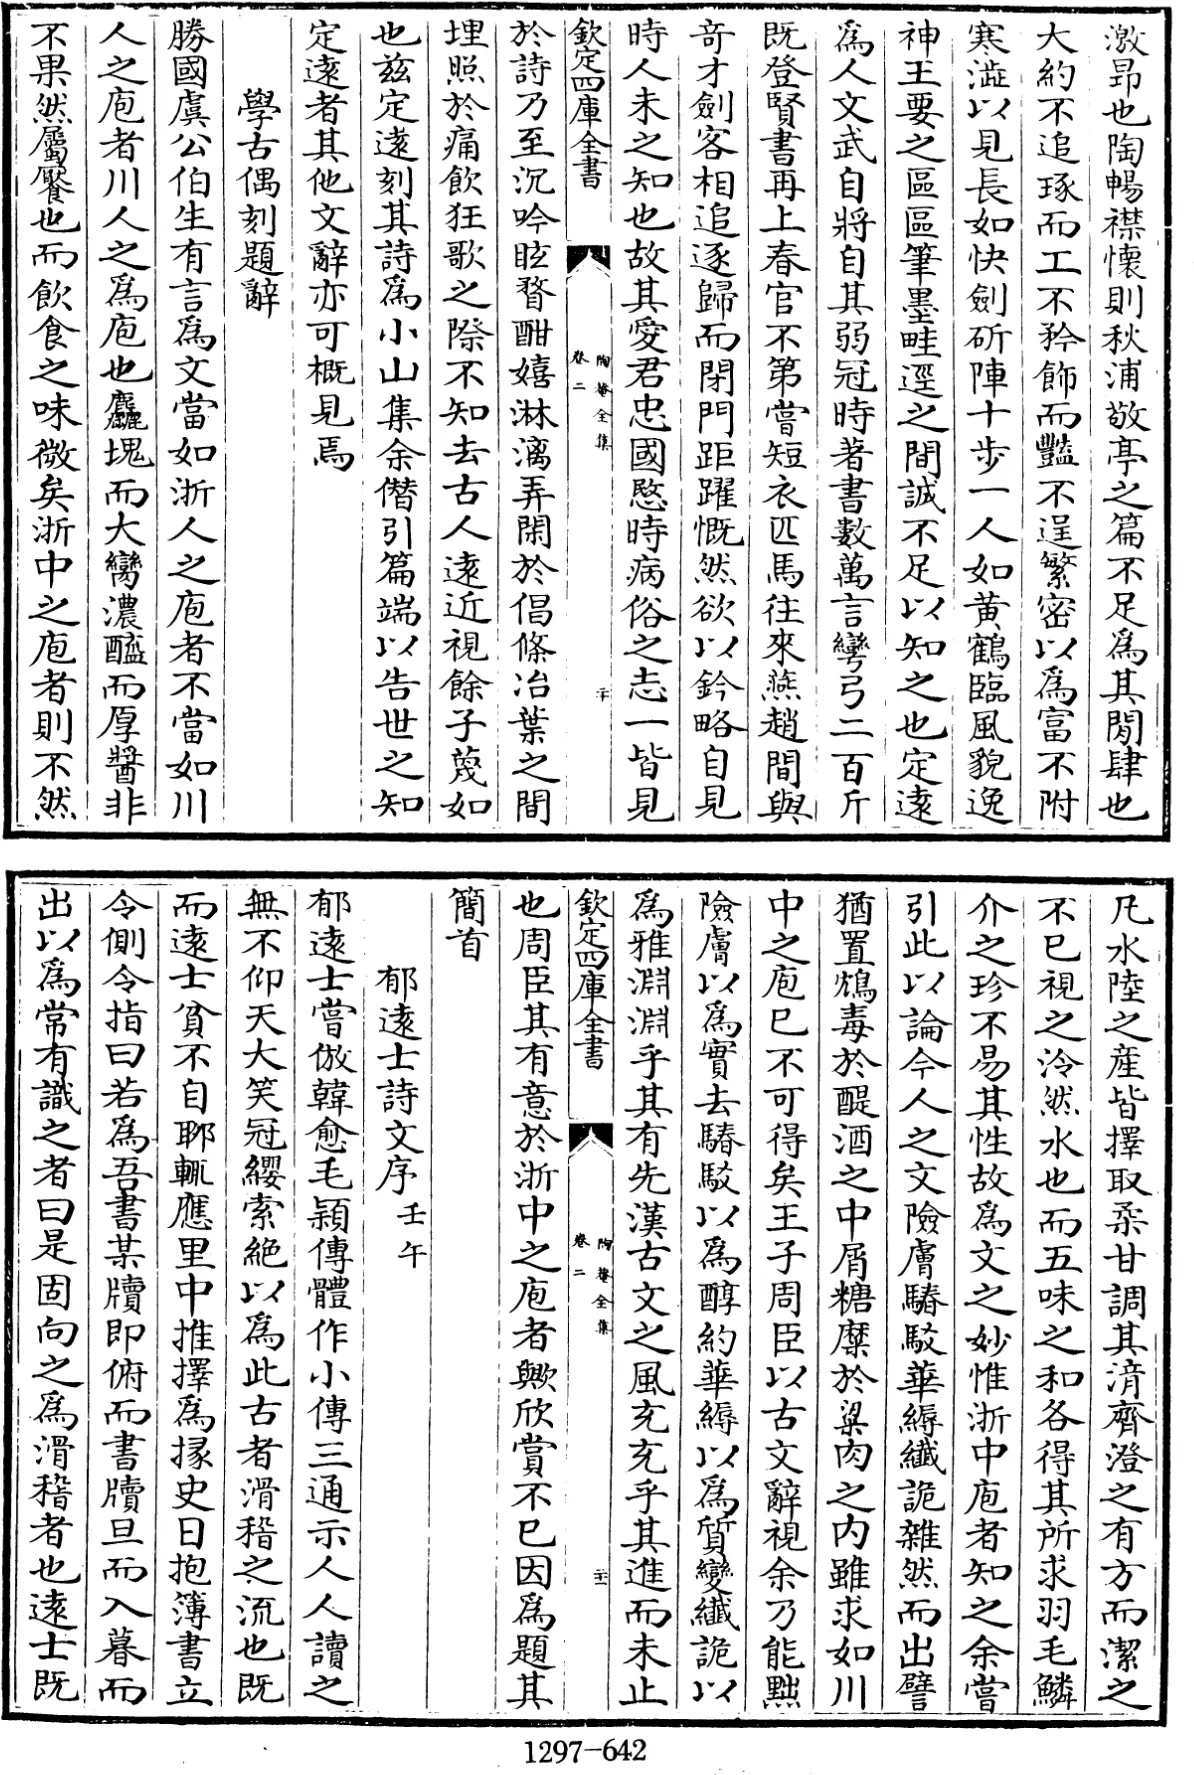 激昻也陶暢襟懷則秋浦敬亭之篇不足爲其閒肆也
大約不追琢而工不矜飾而豔不逞繁密以爲富不附
寒澁以見長如快劍斫陣十步一人如黄鶴臨風貌逸
神王要之區區筆墨畦逕之間誠不足以知之也定遠
爲人文武自將自其弱冠時著書數萬言彎弓二百斤
既登賢書再上春官不第嘗短衣匹馬往來燕趙間與
竒才劍客相追逐歸而閉門距躍慨然欲以鈐略自見
時人未之知也故其愛君忠國愍時病俗之志一皆見
欽定四庫全書
陶菴全集
卷二
二十
於詩乃至沉吟眩瞀酣嬉淋漓弄閑於倡條冶葉之間
埋照於痛飲狂歌之際不知去古人遠近視餘子蔑如
也兹定遠刻其詩爲小山集余僭引篇端以告世之知
定遠者其他文辭亦可槪見焉
學古偶刻題辭
勝國虞公伯生有言爲文當如浙人之庖者不當如川
人之庖者川人之爲庖也麤塊而大臠濃醯而厚醬非
不果然屬饜也而飲食之味微矣浙中之庖者則不然
凡水陸之産皆擇取柔甘調其湇齊澄之有方而潔之
不已視之泠然水也而五味之和各得其所求羽毛鱗
介之珍不易其性故爲文之妙惟浙中庖者知之余嘗
引此以論今人之文險膚駿駁華縟纖詭雜然而出譬
猶置鴆毒於醍酒之中屑糖糜於粱肉之内雖求如川
中之庖已不可得矣王子周臣以古文辭視余乃能黜
險膚以爲實去駿駁以爲醇約華縟以爲質變纖詭以
爲雅淵淵乎其有先漢古文之風充充乎其進而未止
欽定四庫全書
陶菴全集
卷二
二十一
也周臣其有意於浙中之庖者歟欣賞不已因爲題其
簡首
郁遠士詩文序壬午
郁遠士嘗倣韓愈毛穎傳體作小傳三通示人人讀之
無不仰天大笑冠纓索絶以爲此古者滑稽之流也既
而遠士貧不自聊輒應里中推擇爲掾史日抱簿書立
令側令指曰若爲吾書某牘即俯而書牘旦而入暮而
出以爲常有識之者曰是固向之爲滑稽者也遠士既
1297-642